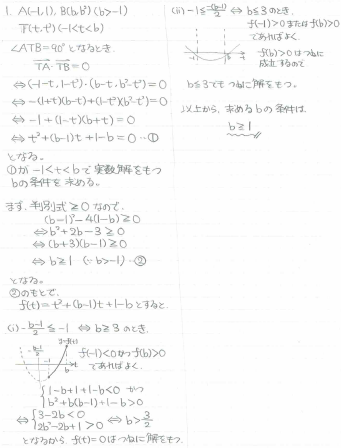 1. A(-1,1), B(b,b²)(b>-1)
T(t,t²)(-1<t<b)
∠ATB=90°となるとき、
TA・TB=0
⇔(-1-t, 1-t²)・(b-t, b²-t²)=0
⇔-(1+t)(b-t)+(1-t²)(b²-t²)=0
⇔-1+(1-t)(b+t)=0
⇔t²+(b-1)t+1-b=0…①
となる。
①が-1<t<bで実数解をもつ
bの条件を求める。
まず、判別式≧0なので、
(b-1)²-4(1-b)≧0
⇔b²+2b-3≧0
⇔(b+3)(b-1)≧0
⇔b≧1 (∵b>-1)…②
となる。
②のもとで、
f(t)=t²+(b-1)t+1-bとすると、
(i) -(b-1)/2≦-1 ⇔ b≧3のとき、
y=f(t)
-(b-1)/2
-1
b
t
f(-1)<0かつf(b)>0
であればよく、
{1-b+1+1-b<0 かつ
b²+b(b-1)+1-b>0
⇔{3-2b<0
2b²-2b+1>0 ⇔b>3/2
となるから、f(t)=0はつねに解をもつ。
(ii) -1≦-(b-1)/2 ⇔ b≦3のとき、
f(-1)>0またはf(b)>0
であればよく、
-1
b
t
f(b)>0はつねに
成立するので
b≦3でもつねに解をもつ。
以上から、求めるbの条件は、
b≧1